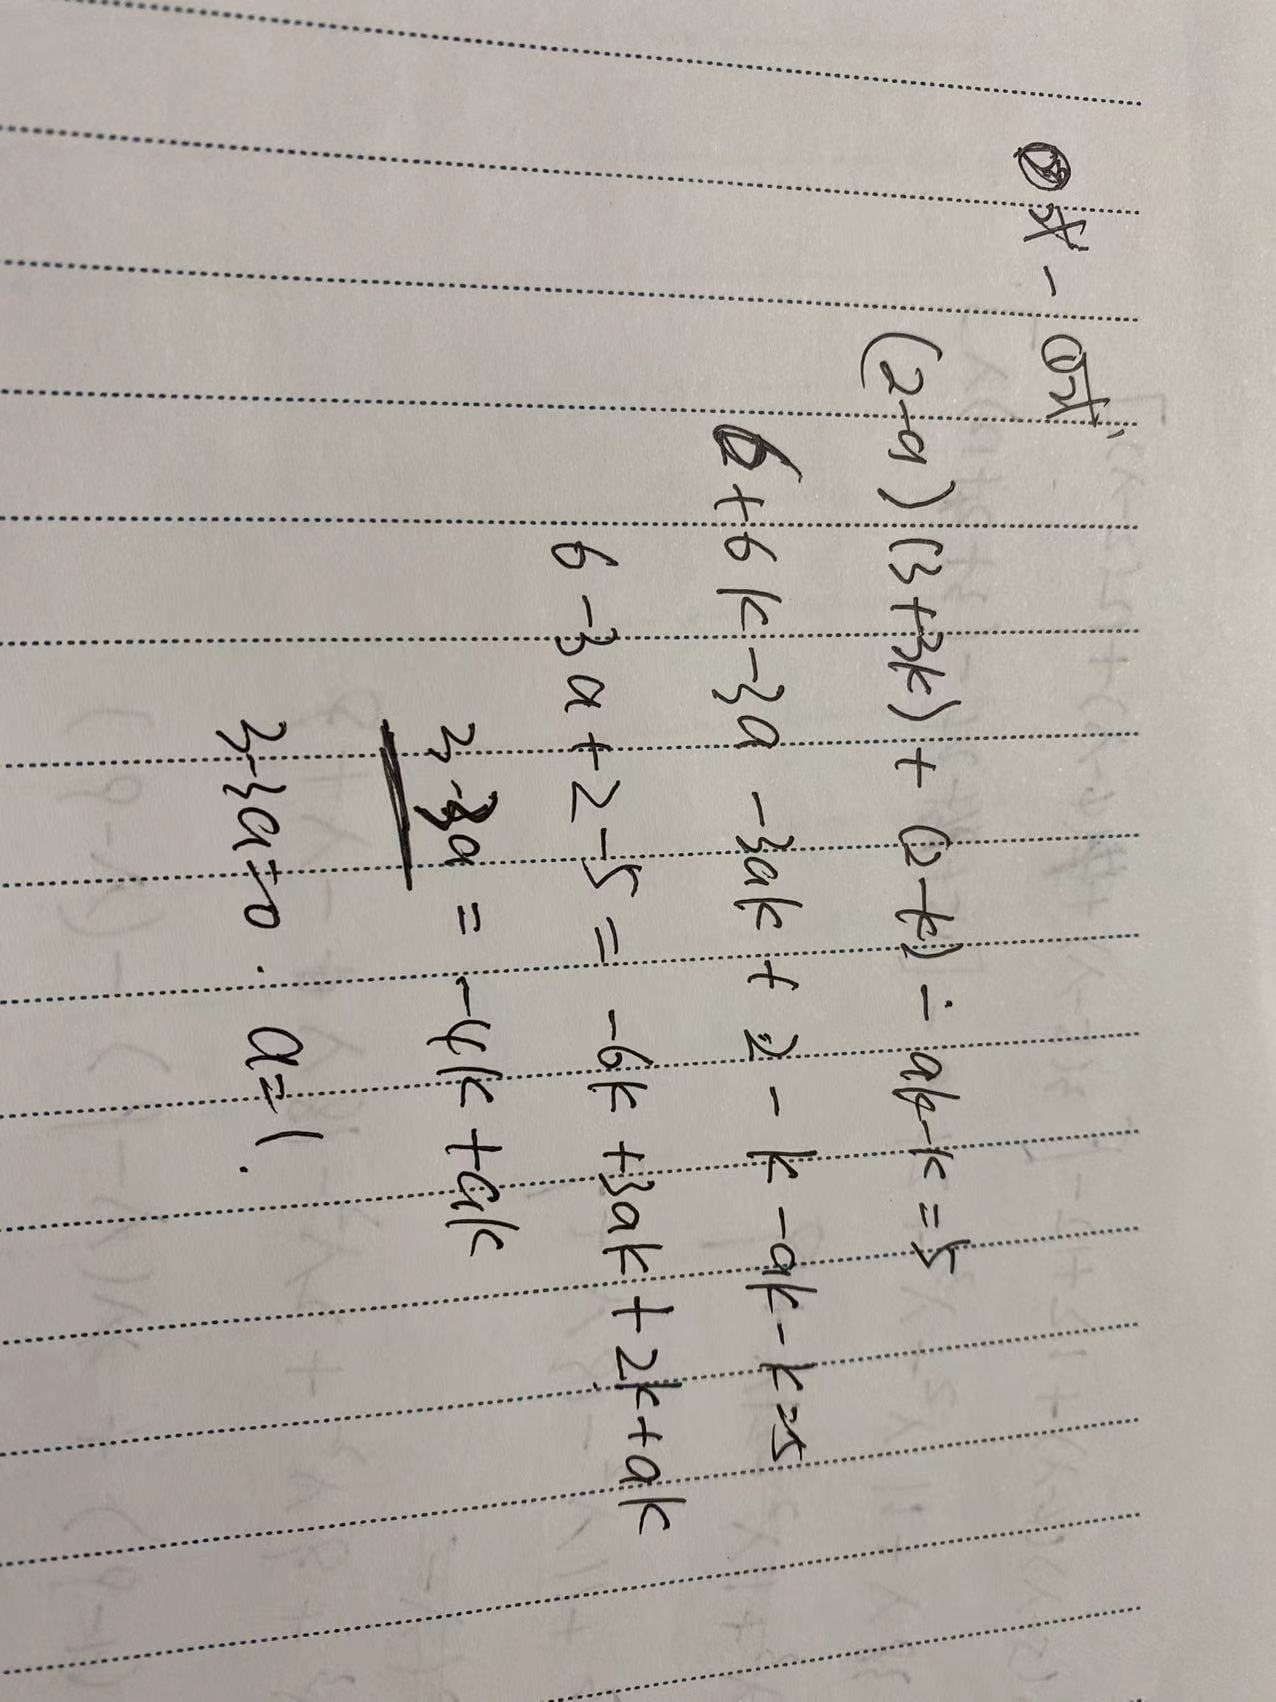 ②式-①式,
(2-a)(3+3k)+(2-k)-ak-k=5
6+6k-3a-3ak+2-k-ak-k=5
6-3a+2-5=-6k+3ak+2k+ak
3-3a=-4k+ak
3-3a=0. a=1.